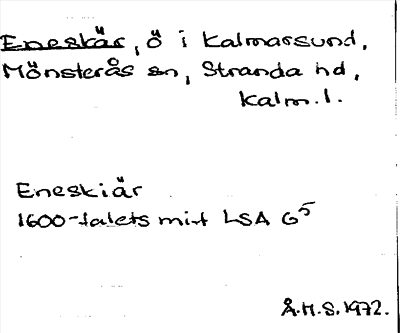 Eneskär, ö i Kalmarsund,
Mönsterås sn, Stranda hd,
Kalm. l.
Eneskiär
1600-talets mitt LSA G5
Å.H.S. 1972.